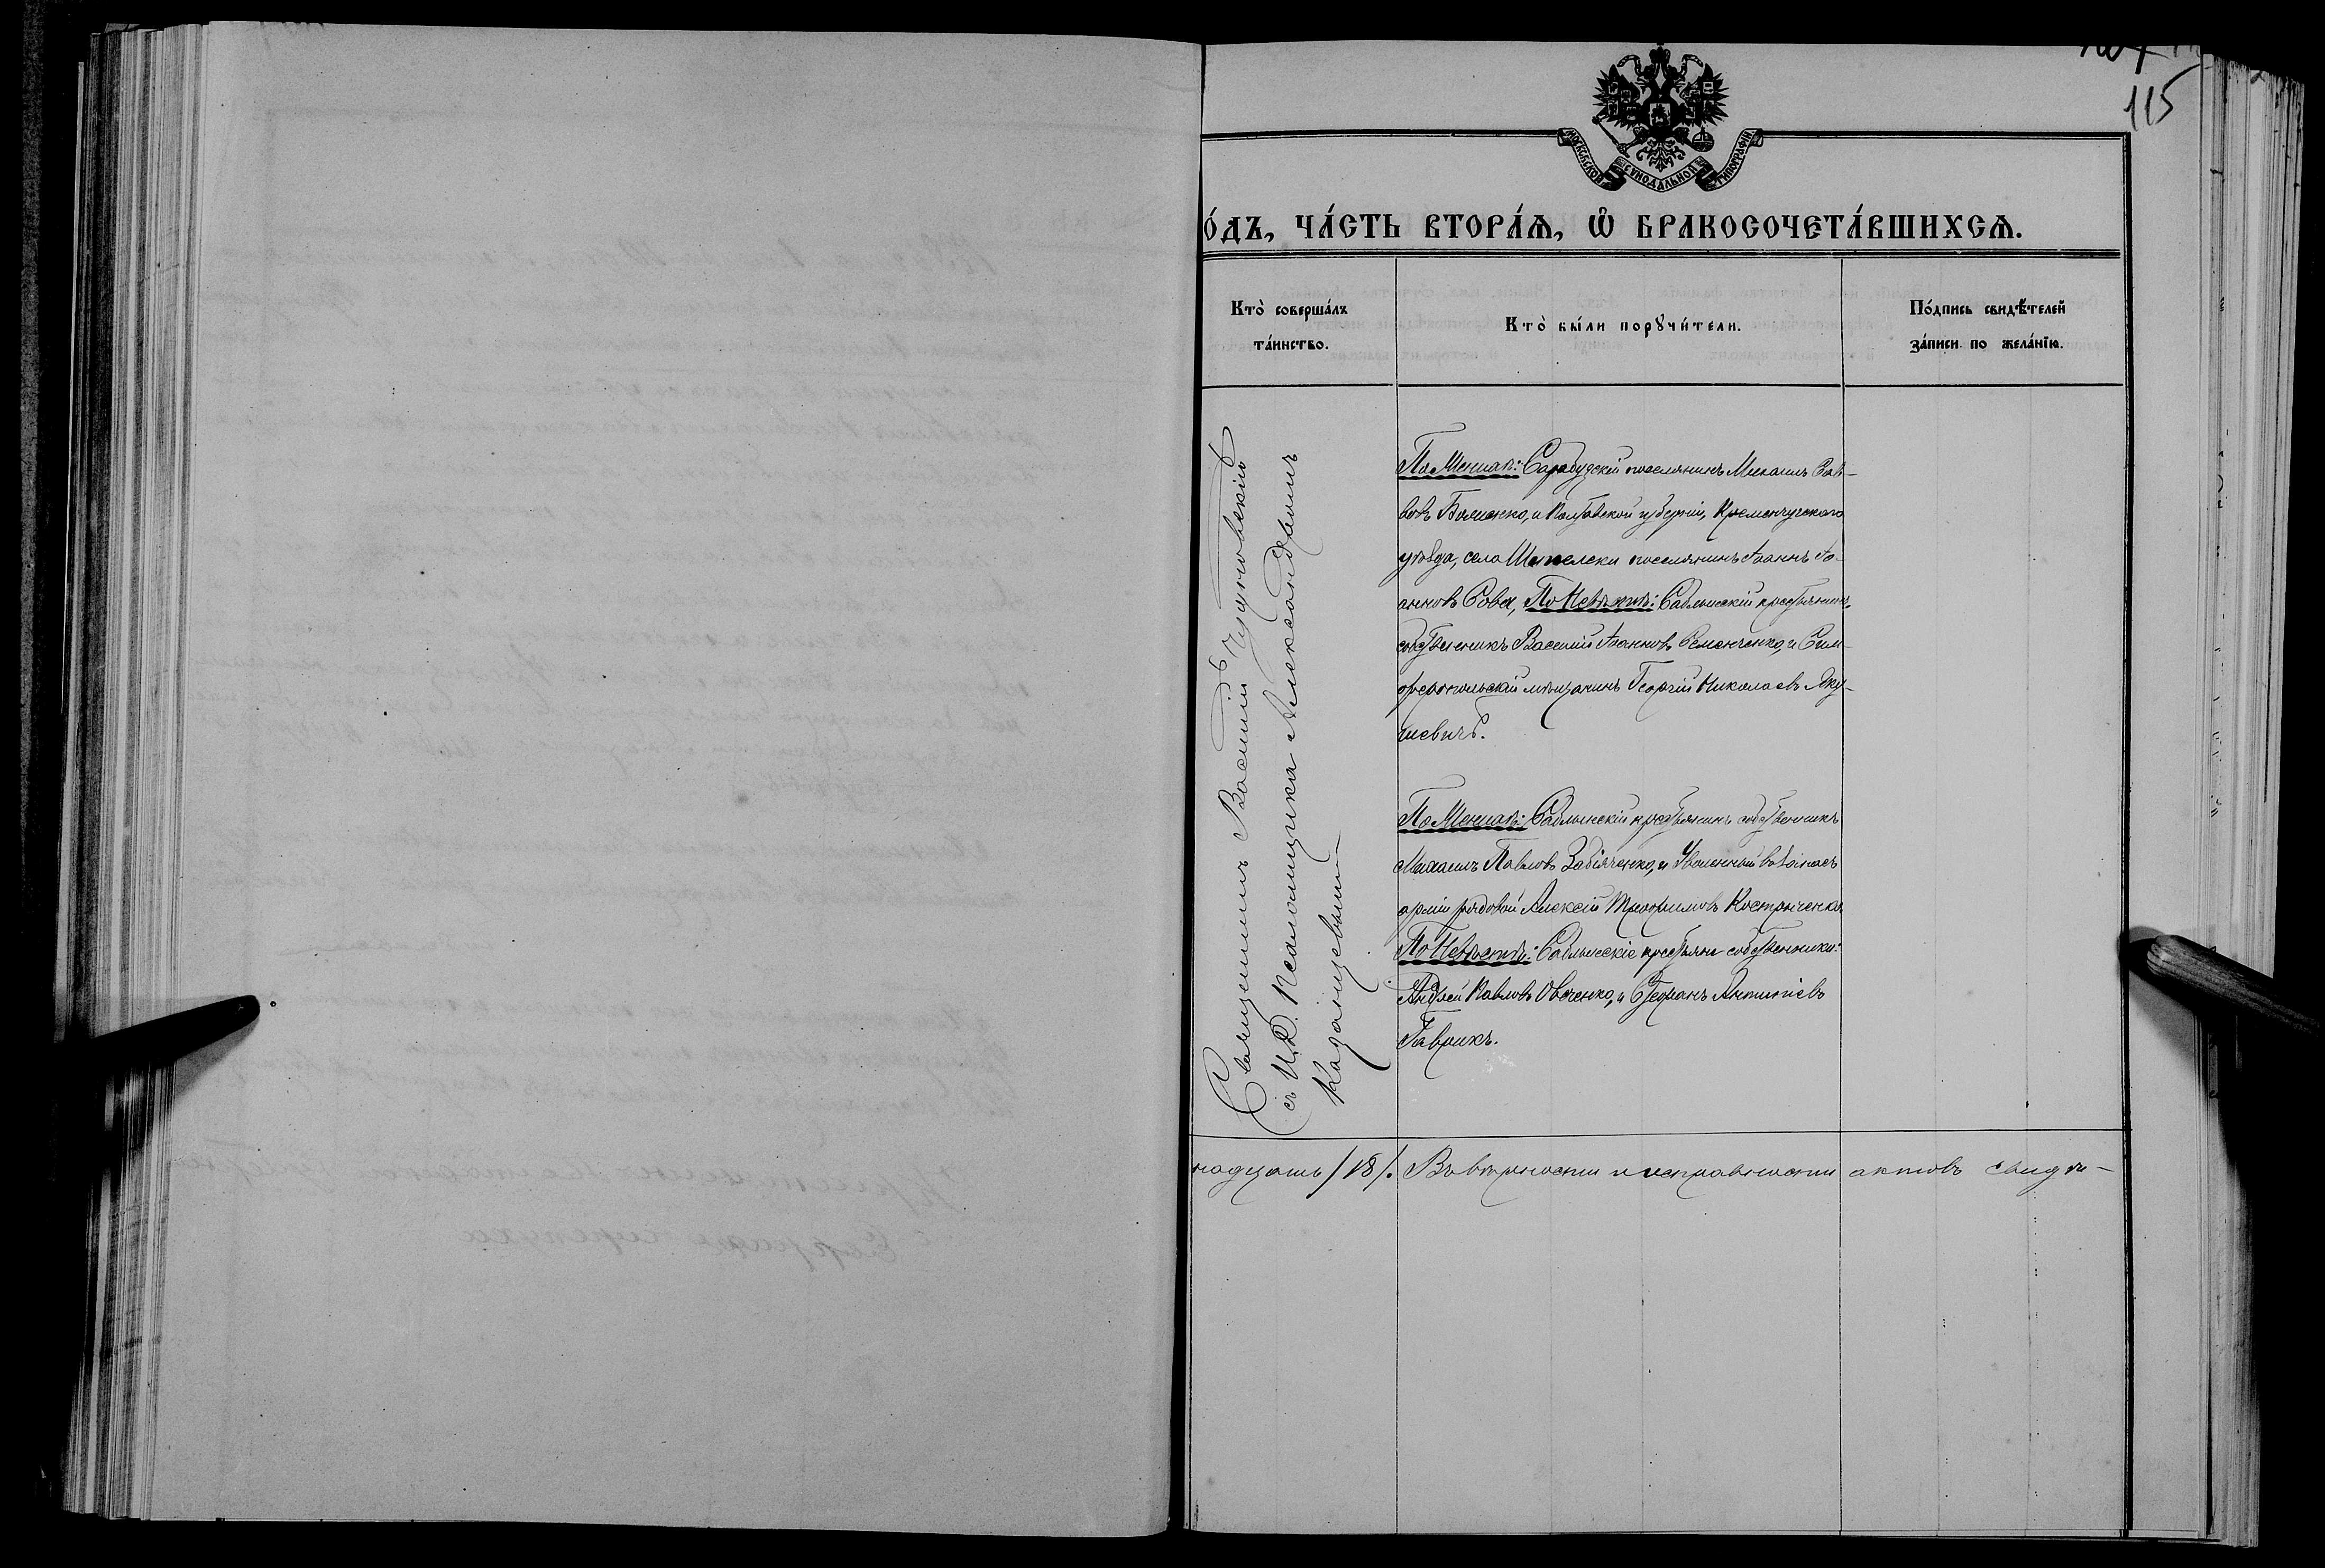 115
МОСКОВСКОЙ СѴНОДАЛЬНОЙ ТИПОГРАФІИ
О́ДЪ, ЧА́СТЬ ВТОРА́Ѧ, Ѽ БРАКОСОЧЕТА́ВШИХСѦ.
Кто̀ соверша́лъ
та́инство.
Кто̀ бы́ли порꙋчи́тели.
По́дпись свидѣ́телей
за́писи по жела́нїю.
Священникъ Василій Чудновскій
съ И.Д. Псаломщика Александромъ
Казанцевымъ
По Женихѣ: Сарабузскій поселянинъ Михаилъ Сав-
вовъ Боженко, и Полтавской губерніи, Кременчугскаго
уѣзда, села поселянинъ Іоаннъ Іо-
анновъ Сова, По Невѣстѣ: Саблынскій крестьянинъ
собственникъ Василій Іоанновъ Семенченко, и Сим-
феропольскій мѣщанинъ Георгій Николаевъ Яку-
шевичъ.
По Женихѣ: Саблынскій крестьянинъ собственникъ
Михаилъ Павловъ Забіяченко, и Уволенный въ запасъ
арміи рядовой Алексѣй Трофимовъ Костриченко
По Невѣстѣ: Саблынскіе крестьяне собственники:
Андрей Павловъ Овченко, и Стефанъ Антипіевъ
Гаврикъ.
надцать /18/. Въ вѣрности и исправности актовъ свидѣ-